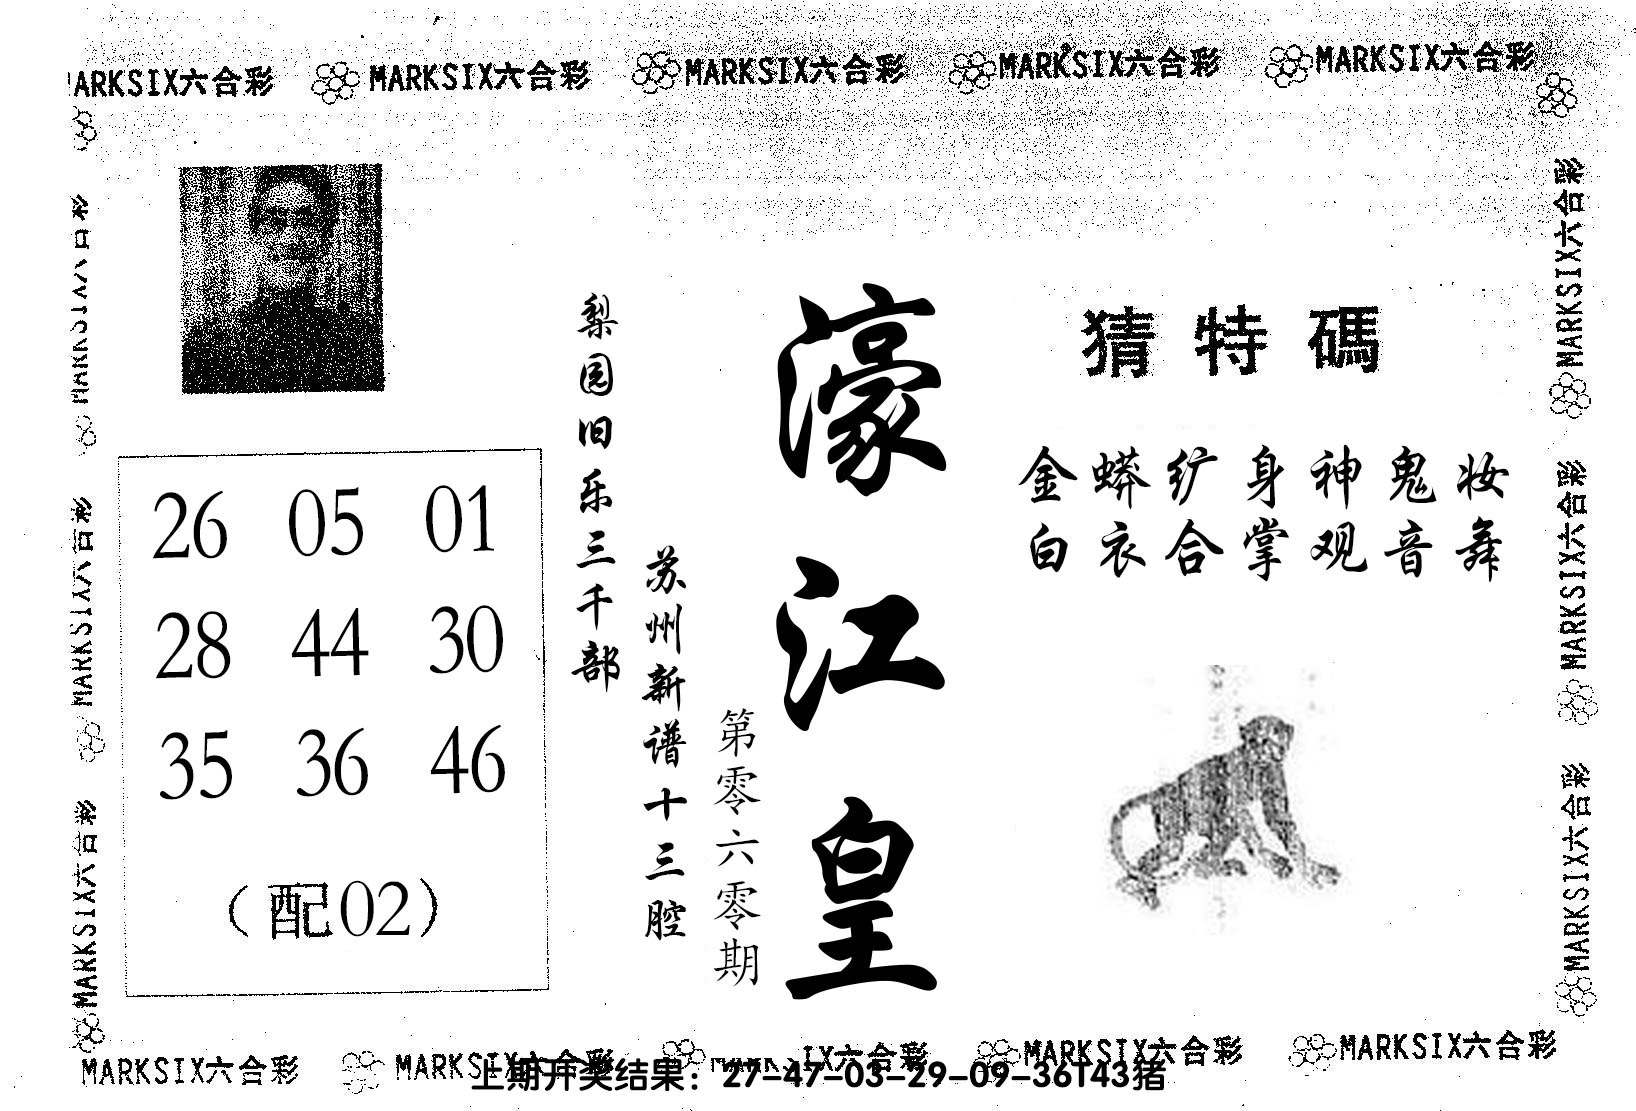 MARKSIX六合彩 MARKSIX六合彩 MARKSIX六合彩 MARKSIX六合彩 MARKSIX六合彩
猜特碼
金蟒纩身神鬼妆
白衣合掌观音舞
濠江皇
第零六零期
苏州新谱十三腔
梨园旧乐三千部
26 05 01
28 44 30
35 36 46
（配02）
MARKSIX六合彩
MARKSIX六合彩
MARKSIX六合彩
MARKSIX六合彩
MARKSIX六合彩
MARKSIX六合彩
MARKSIX六合彩 MARKSIX六合彩 MARKSIX六合彩 MARKSIX六合彩 MARKSIX六合彩
上期开奖结果：27-47-03-29-09-36T43猪